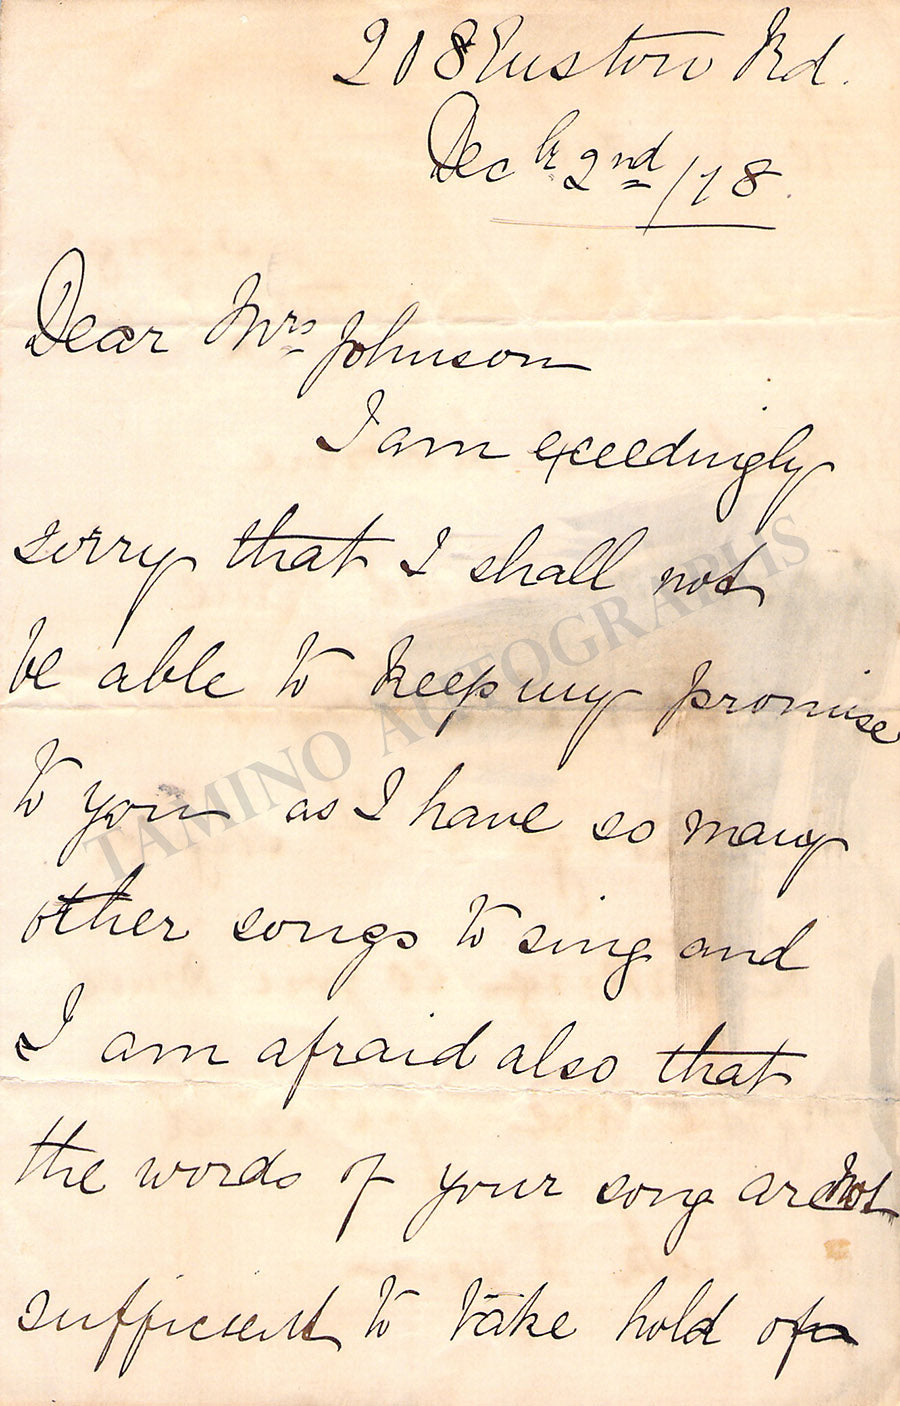 208 Euston Rd.
Decbr 2nd/78.
Dear Mrs Johnson
I am exceedingly
sorry that I shall not
be able to keep my promise
to you as I have so many
other songs to sing and
I am afraid also that
the words of your song are not
sufficient to take hold of
TAMINO AUTOGRAPHS